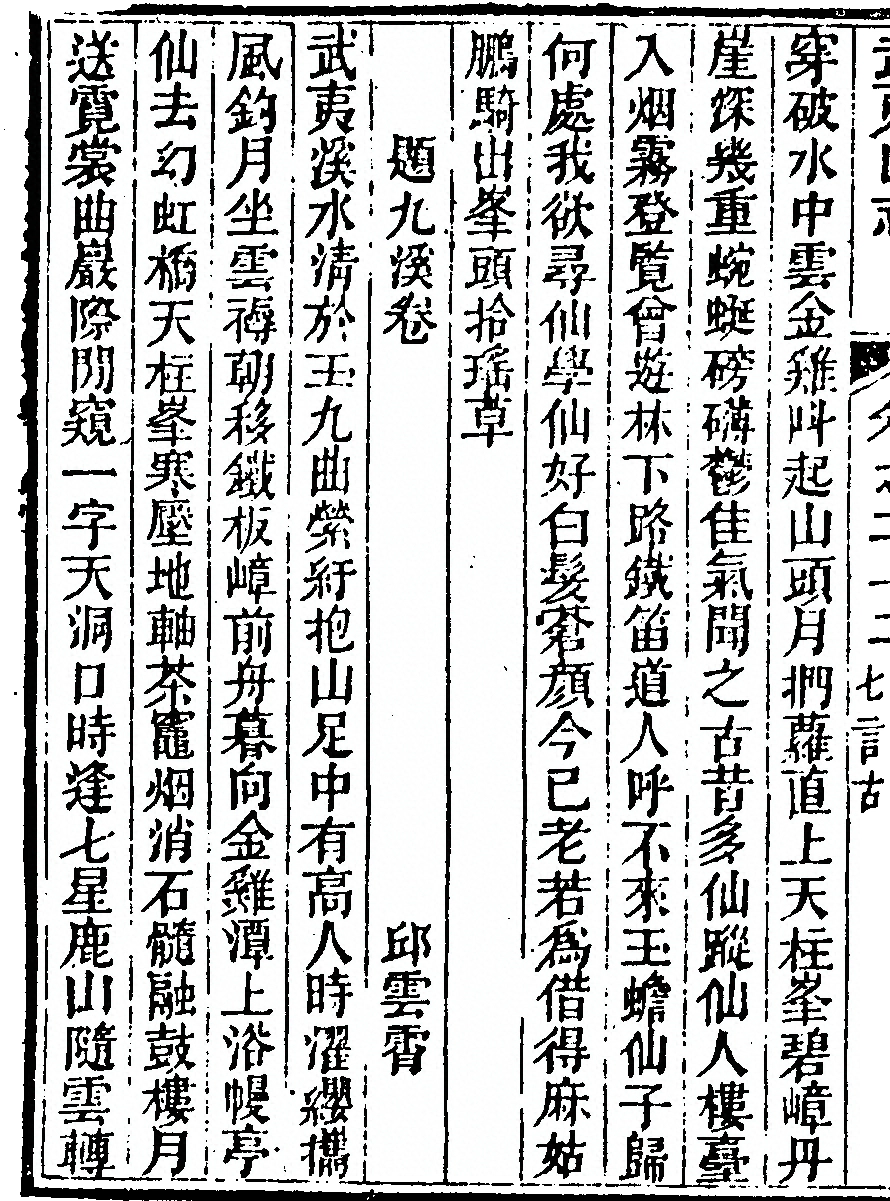 卷之二十二 七言古
穿破水中雲金雞呌起山頭月捫蘿直上天柱峯碧嶂丹
崖深幾重蜿蜒磅礴鬱佳氣聞之古昔多仙蹤仙人樓臺
入烟霧登覧曾遊林下路鐵笛道人呼不來玉蟾仙子歸
何處我欲尋仙學仙好白髪蒼顔今已老若爲借得麻姑
鵬騎出峯頭拾瑶草
題九溪卷
邱雲霄
武夷溪水清於玉九曲縈紆抱山足中有高人時濯纓擕
風鈞月坐雲褥朝移鐵板嶂前舟暮向金雞潭上浴幔亭
仙去幻虹橋天柱峯寒壓地軸茶竈烟消石髓融鼓樓月
送霓裳曲巖際閒窺一字天洞口時逢七星鹿山隨雲轉